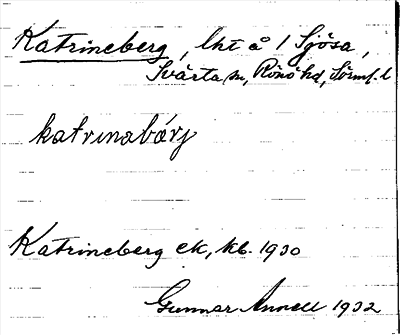 Katrineberg, lht å 1 Sjösa,
Svärta sn, Rönö hd, Sörml. l
katrinabärj
Katrineberg ek, kb. 1930
Gunnar Annell 1932